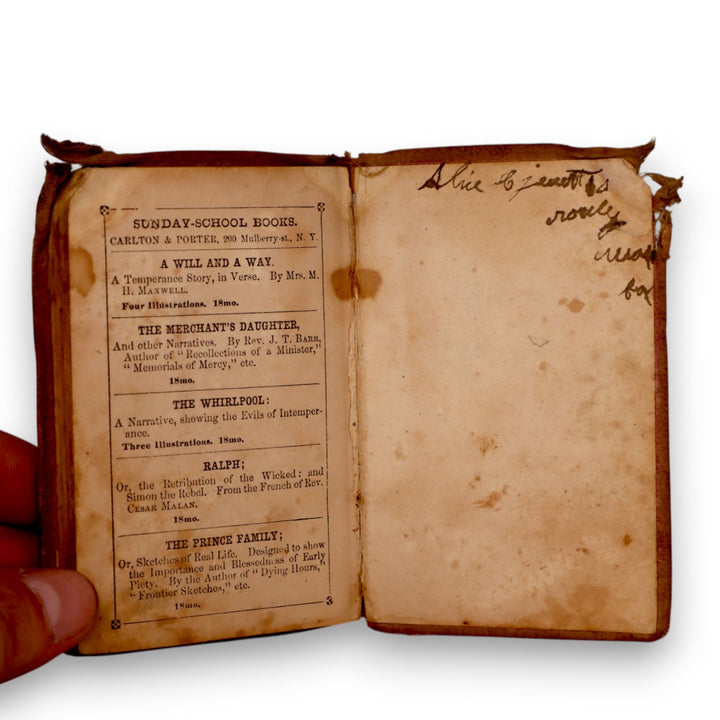 SUNDAY-SCHOOL BOOKS.
CARLTON & PORTER, 200 Mulberry-st., N. Y.
A WILL AND A WAY.
A Temperance Story, in Verse. By Mrs. M.
H. MAXWELL.
Four Illustrations. 18mo.
THE MERCHANT'S DAUGHTER,
And other Narratives. By Rev. J. T. BARR,
Author of "Recollections of a Minister,"
"Memorials of Mercy," etc.
18mo.
THE WHIRLPOOL:
A Narrative, showing the Evils of Intemper-
ance.
Three Illustrations. 18mo.
RALPH;
Or, the Retribution of the Wicked: and
Simon the Rebel. From the French of Rev.
CESAR MALAN.
18mo.
THE PRINCE FAMILY;
Or, Sketches of Real Life. Designed to show
the Importance and Blessedness of Early
Piety. By the Author of "Dying Hours,"
"Frontier Sketches," etc.
18mo.
3
box